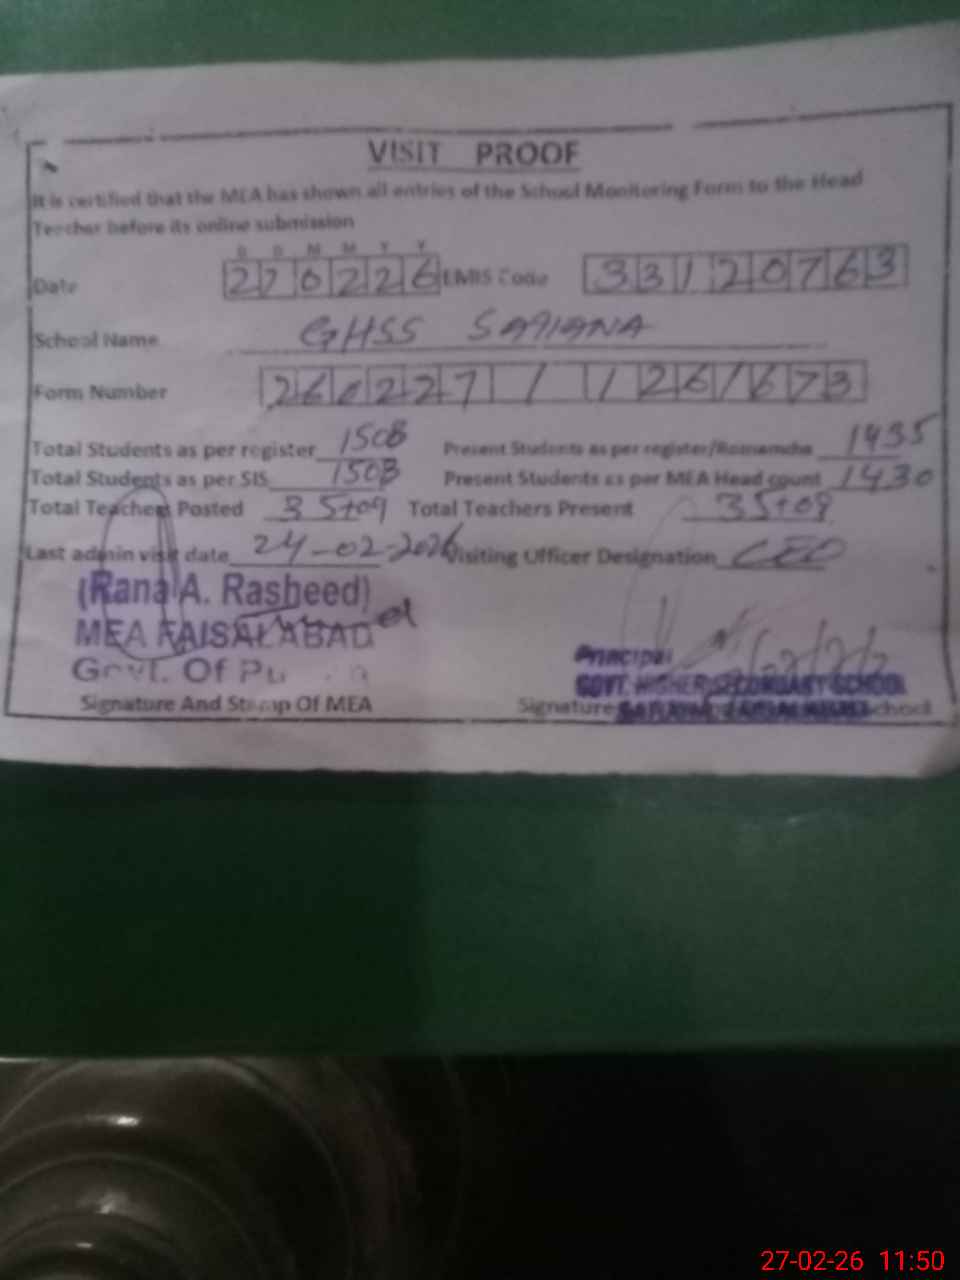 VISIT PROOF
It is certified that the MEA has shown all entries of the School Monitoring Form to the Head
Teacher before its online submission
D D M M Y Y
Date 270226 EMIS Code 33120763
School Name GHSS SATIANA
Form Number
Total Students as per register 1508 Present Students as per register/Roznamcha 1435
Total Students as per SIS 1508 Present Students as per MEA Head count 1430
Total Teachers Posted 35+09 Total Teachers Present 35+09
Last admin visit date 24-02-2026 Visiting Officer Designation CEO
(Rana A. Rasheed)
MEA FAISALABAD
Govt. Of
Principal
GOVT. HIGHER SECONDARY SCHOOL
Signature And Stamp Of MEA Signature School
27-02-26 11:50